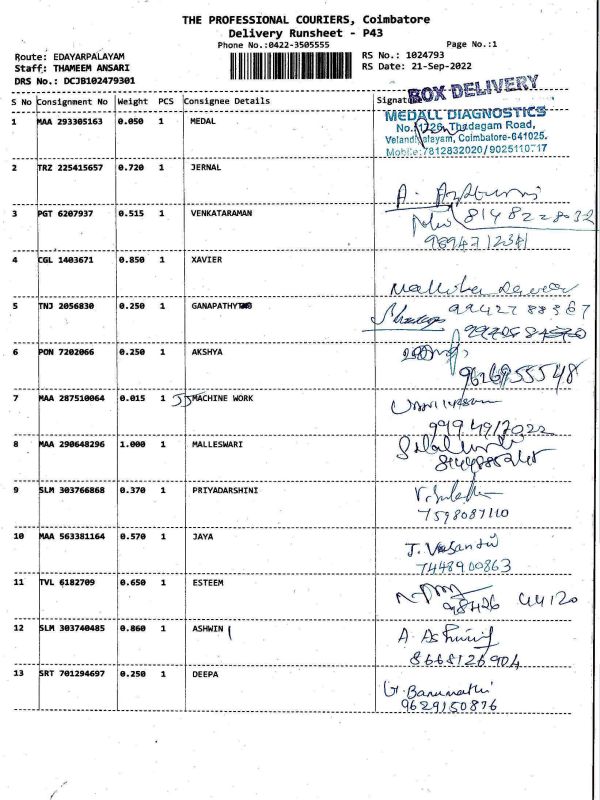 THE PROFESSIONAL COURIERS, Coimbatore
Delivery Runsheet - P43
Phone No.:0422-3505555 Page No.:1
Route: EDAYARPALAYAM RS No.: 1024793
Staff: THAMEEM ANSARI RS Date: 21-Sep-2022
DRS No.: DCJB102479301
BOX DELIVERY
S No Consignment No Weight PCS Consignee Details Signature
1 MAA 293305163 0.050 1 MEDAL
MEDALL DIAGNOSTICS
No. 1726, Thadagam Road,
Velandipalayam, Coimbatore-641025.
Mobile:7812832020/9025110717
2 TRZ 225415657 0.720 1 JERNAL
3 PGT 6207937 0.515 1 VENKATARAMAN
4 CGL 1403671 0.850 1 XAVIER
5 TNJ 2056830 0.250 1 GANAPATHY
6 PON 7202066 0.250 1 AKSHYA
9626955548
7 MAA 287510064 0.015 1 JJ MACHINE WORK
8 MAA 290648296 1.000 1 MALLESWARI
9 SLM 303766868 0.370 1 PRIYADARSHINI
7598087110
10 MAA 563381164 0.570 1 JAYA
J. Vasanthi
7448900863
11 TVL 6182709 0.650 1 ESTEEM
98426 44120
12 SLM 303740485 0.860 1 ASHWIN
8668126904
13 SRT 701294697 0.250 1 DEEPA
G. Banumathi
9629150876